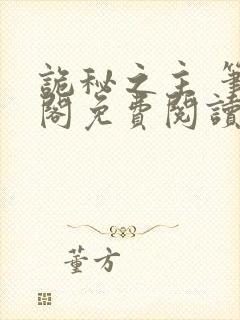 詭秘之主 筆
閣免費閱讀
董方